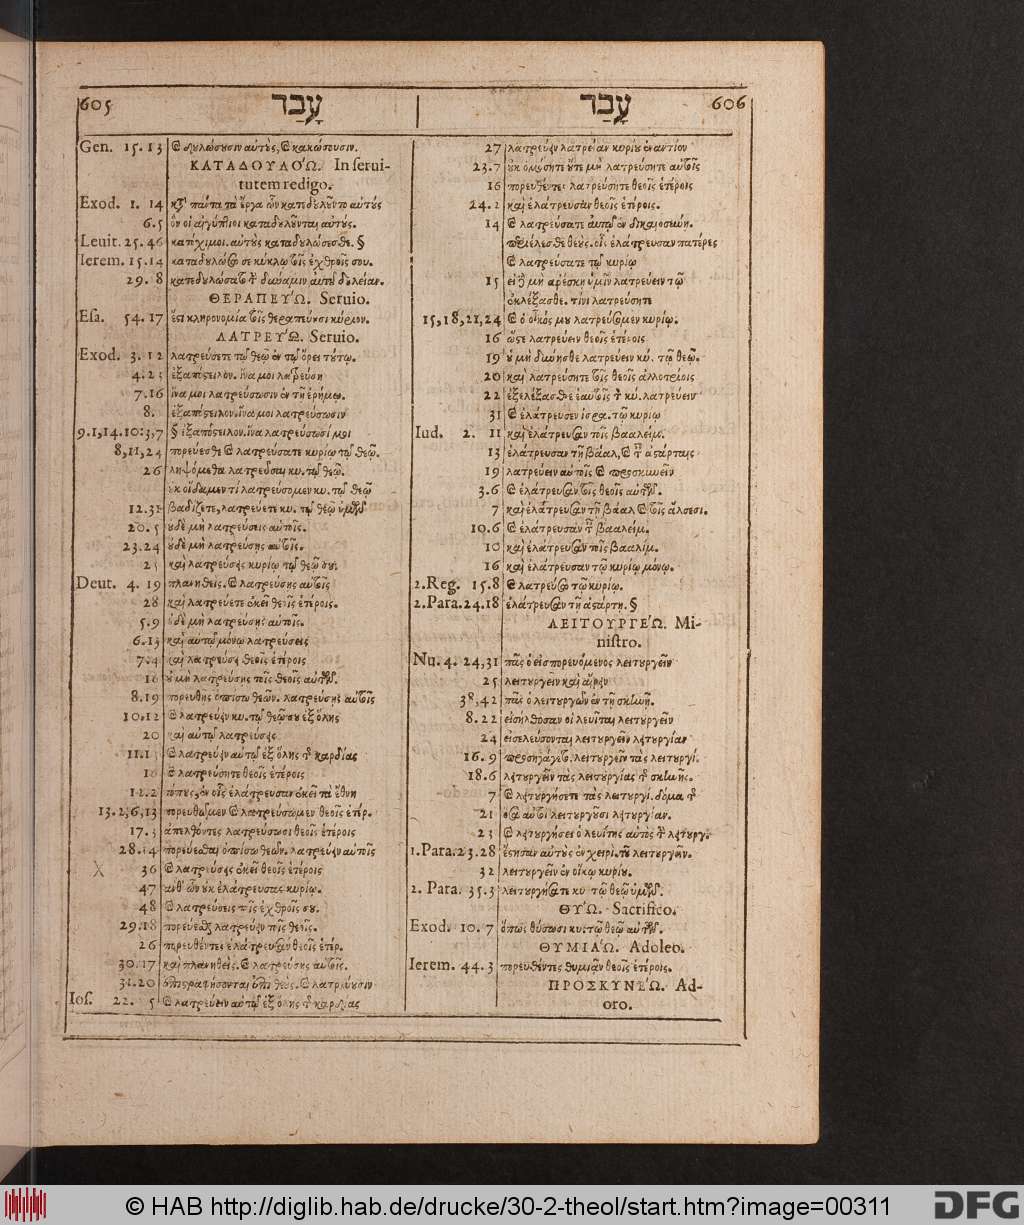 605 עָבַד
Gen. 15.13 ϗ δουλώσουσιν αὐτοὺς, ϗ κακώσουσιν.
ΚΑΤΑΔΟΥΛΟΏ. In serui-
tutem redigo.
Exod. 1. 14 κατὰ πάντα τὰ ἔργα ὧν κατεδουλοῦντο αὐτούς
6.5 ὃν οἱ αἰγύπτιοι καταδουλοῦνται αὐτούς.
Leuit. 25.46 κατόχιμοι. αὐτοὺς καταδουλώσεσθε. §
Ierem. 15.14 καταδουλώσω σε κύκλῳ τοῖς ἐχθροῖς σου.
29. 8 κατεδουλώσατο τὴν δύναμιν αὐτοῦ δουλείαν.
ΘΕΡΑΠΕΥΏ. Seruio.
Esa. 54. 17 ἔστι κληρονομία τοῖς θεραπεύουσι κύριον.
ΛΑΤΡΕΥΏ. Seruio.
Exod. 3. 12 λατρεύσετε τῷ θεῷ ἐν τῷ ὄρει τούτῳ.
4. 23 ἐξαπόστειλον. ἵνα μοι λατρεύσῃ
7.16 ἵνα μοι λατρεύσωσιν ἐν τῇ ἐρήμῳ.
8. ἐξαπόστειλον. ἵνα μοι λατρεύσωσιν
9.1,14.10:3,7 § ἐξαπόστειλον. ἵνα λατρεύσωσί μοι
8,11,24 πορεύεσθε ϗ λατρεύσατε κυρίῳ τῷ θεῷ.
26 ληψόμεθα λατρεῦσαι κυ. τῷ θεῷ.
οὐκ οἴδαμεν τί λατρεύσομεν κυ. τῷ θεῷ
12.31 βαδίζετε, λατρεύετε κυ. τῷ θεῷ ὑμῶν
20. 5 οὐδὲ μὴ λατρεύσεις αὐτοῖς.
23.24 οὐδὲ μὴ λατρεύσῃς αὐτοῖς.
25 καὶ λατρεύσεις κυρίῳ τῷ θεῷ σου.
Deut. 4. 19 πλανηθεὶς. ϗ λατρεύσῃς αὐτοῖς
28 καὶ λατρεύετε ἐκεῖ θεοῖς ἑτέροις.
5.9 οὐδὲ μὴ λατρεύσῃς αὐτοῖς.
6.13 καὶ αὐτῷ μόνῳ λατρεύσεις
7.4 καὶ λατρεύσει θεοῖς ἑτέροις
16 οὐ μὴ λατρεύσῃς τοῖς θεοῖς αὐτῶν.
8.19 πορευθῇς ὀπίσω θεῶν. λατρεύσῃς αὐτοῖς
10.12 ϗ λατρεύειν κυ. τῷ θεῷ σου ἐξ ὅλης
20 καὶ αὐτῷ λατρεύσεις
11.13 ϗ λατρεύειν αὐτῷ ἐξ ὅλης τῆς καρδίας
16 ϗ λατρεύσητε θεοῖς ἑτέροις
12.2 τόπους, ἐν οἷς ἐλάτρευσαν ἐκεῖ τὰ ἔθνη
13.2,6,13 πορευθῶμεν ϗ λατρεύσωμεν θεοῖς ἑτέρ.
17.3 ἀπελθόντες λατρεύσωσι θεοῖς ἑτέροις
28.14 πορεύεσθαι ὀπίσω θεῶν. λατρεύειν αὐτοῖς
36 ϗ λατρεύσεις ἐκεῖ θεοῖς ἑτέροις
47 ἀνθ' ὧν οὐκ ἐλάτρευσας κυρίῳ.
48 ϗ λατρεύσεις τοῖς ἐχθροῖς σου.
29.18 πορεύεσθαι λατρεύειν τοῖς θεοῖς.
26 πορευθέντες ἐλάτρευσαν θεοῖς ἑτέρ.
30.17 καὶ πλανηθεὶς. ϗ λατρεύσῃς αὐτοῖς.
31.20 ἐπιστραφήσονται ἐπὶ θεοὺς. ϗ λατρεύουσιν
Ios. 22. 5 ϗ λατρεύειν αὐτῷ ἐξ ὅλης τῆς καρδίας
עָבַד 606
27 λατρεύειν λατρείαν κυρίου ἐναντίον
23.7 οὐκ ὀμόσητε οὔτε μὴ λατρεύσητε αὐτοῖς
16 πορευθέντες λατρεύσητε θεοῖς ἑτέροις
24.2 καὶ ἐλάτρευσαν θεοῖς ἑτέροις.
14 ϗ λατρεύσατε αὐτῷ ἐν δικαιοσύνῃ.
περιέλεσθε θεοὺς. οἷς ἐλάτρευσαν πατέρες
ϗ λατρεύσατε τῷ κυρίῳ
15 εἰ δὲ μὴ ἀρέσκῃ ὑμῖν λατρεύειν τῷ
ἐκλέξασθε. τίνι λατρεύσητε
15,18,21,24 ϗ ὁ οἶκός μου λατρεύσομεν κυρίῳ.
16 ὥστε λατρεύειν θεοῖς ἑτέροις
19 οὐ μὴ δύνησθε λατρεύειν κυ. τῷ θεῷ.
20 καὶ λατρεύσητε τοῖς θεοῖς ἀλλοτρίοις
22 ἐξελέξασθε ἑαυτοῖς τὸν κυ. λατρεύειν
31 ϗ ἐλάτρευσεν ἰσρα. τῷ κυρίῳ
Iud. 2. 11 καὶ ἐλάτρευσαν τοῖς βααλείμ.
13 ἐλάτρευσαν τῇ βάαλ, ϗ ταῖς ἀστάρταις
19 λατρεύειν αὐτοῖς ϗ προσκυνεῖν
3.6 ϗ ἐλάτρευσαν τοῖς θεοῖς αὐτῶν.
7 καὶ ἐλάτρευσαν τῇ βάαλ ϗ τοῖς ἄλσεσι.
10.6 ϗ ἐλάτρευσαν ταῖς βααλείμ.
10 καὶ ἐλάτρευσαν τοῖς βααλίμ.
16 καὶ ἐλάτρευσαν τῷ κυρίῳ μόνῳ.
2.Reg. 15.8 ϗ λατρεύσω τῷ κυρίῳ.
2.Para. 24.18 ἐλάτρευσαν τῇ ἀστάρτῃ. §
ΛΕΙΤΟΥΡΓΕΏ. Mi-
nistro.
Nu. 4. 24,31 πᾶς ὁ εἰσπορευόμενος λειτουργεῖν
25 λειτουργεῖν καὶ αἴρειν
38,42 πᾶς ὁ λειτουργῶν ἐν τῇ σκηνῇ.
8.22 εἰσήλθοσαν οἱ λευῖται λειτουργεῖν
24 εἰσελεύσονται λειτουργεῖν λειτουργίαν
16.9 προσηγάγετο. λειτουργεῖν τὰς λειτουργί.
18.6 λειτουργεῖν τὰς λειτουργίας τῆς σκηνῆς.
7 ϗ λειτουργήσετε τὰς λειτουργί. δόμα τῆς
21 ὅσα αὐτοὶ λειτουργοῦσι λειτουργίαν.
23 ϗ λειτουργήσει ὁ λευίτης αὐτὸς τὴν λειτουργ.
1.Para. 23.28 ἔστησαν αὐτοὺς ἐν χειρὶ. τοῦ λειτουργεῖν.
32 λειτουργεῖν ἐν οἴκῳ κυρίου.
2. Para. 35.3 λειτουργήσατε κυ τῷ θεῷ ὑμῶν.
ΘΥΏ. Sacrifico.
Exod. 10. 7 ὅπως θύσωσι κυ: τῷ θεῷ αὐτῶν.
ΘΥΜΙΑΏ. Adoleo.
Ierem. 44.3 πορευθέντες θυμιᾶν θεοῖς ἑτέροις.
ΠΡΟΣΚΥΝΕΏ. Ad-
oro.
© HAB http://diglib.hab.de/drucke/30-2-theol/start.htm?image=00311
DFG